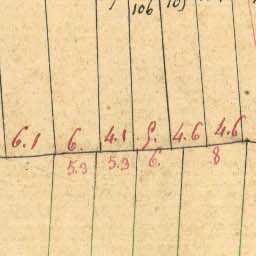 106
6.1 6. 4.1 9. 4.6 4.6
5.9 5.9 6. 8